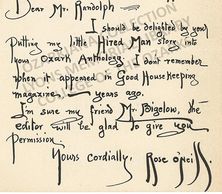 Dear Mr. Randolph —
I should be delighted by your
putting my little Hired Man story into
your Ozark Anthology. I don't remember
when it appeared in Good Housekeeping
magazine — years ago.
I'm sure my friend Mr. Bigelow, the
editor will be glad to give you
permission.
Yours Cordially,
Rose O'Neill